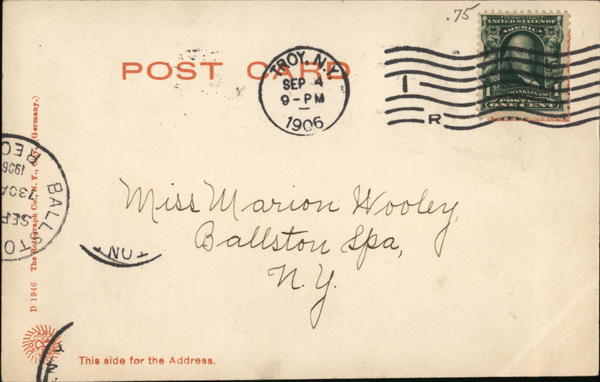 .75
POST CARD
TROY, N.Y.
SEP 4
9-PM
1906
1
R
UNITED STATES OF
AMERICA
FRANKLIN
1 1
POSTAGE
ONE CENT
BALLSTO
REC
1906
730A
SEP
Miss Marion Wooley,
Ballston Spa,
N.Y.
D 1946 The Rotograph Co., N. Y., Germany.)
This side for the Address.